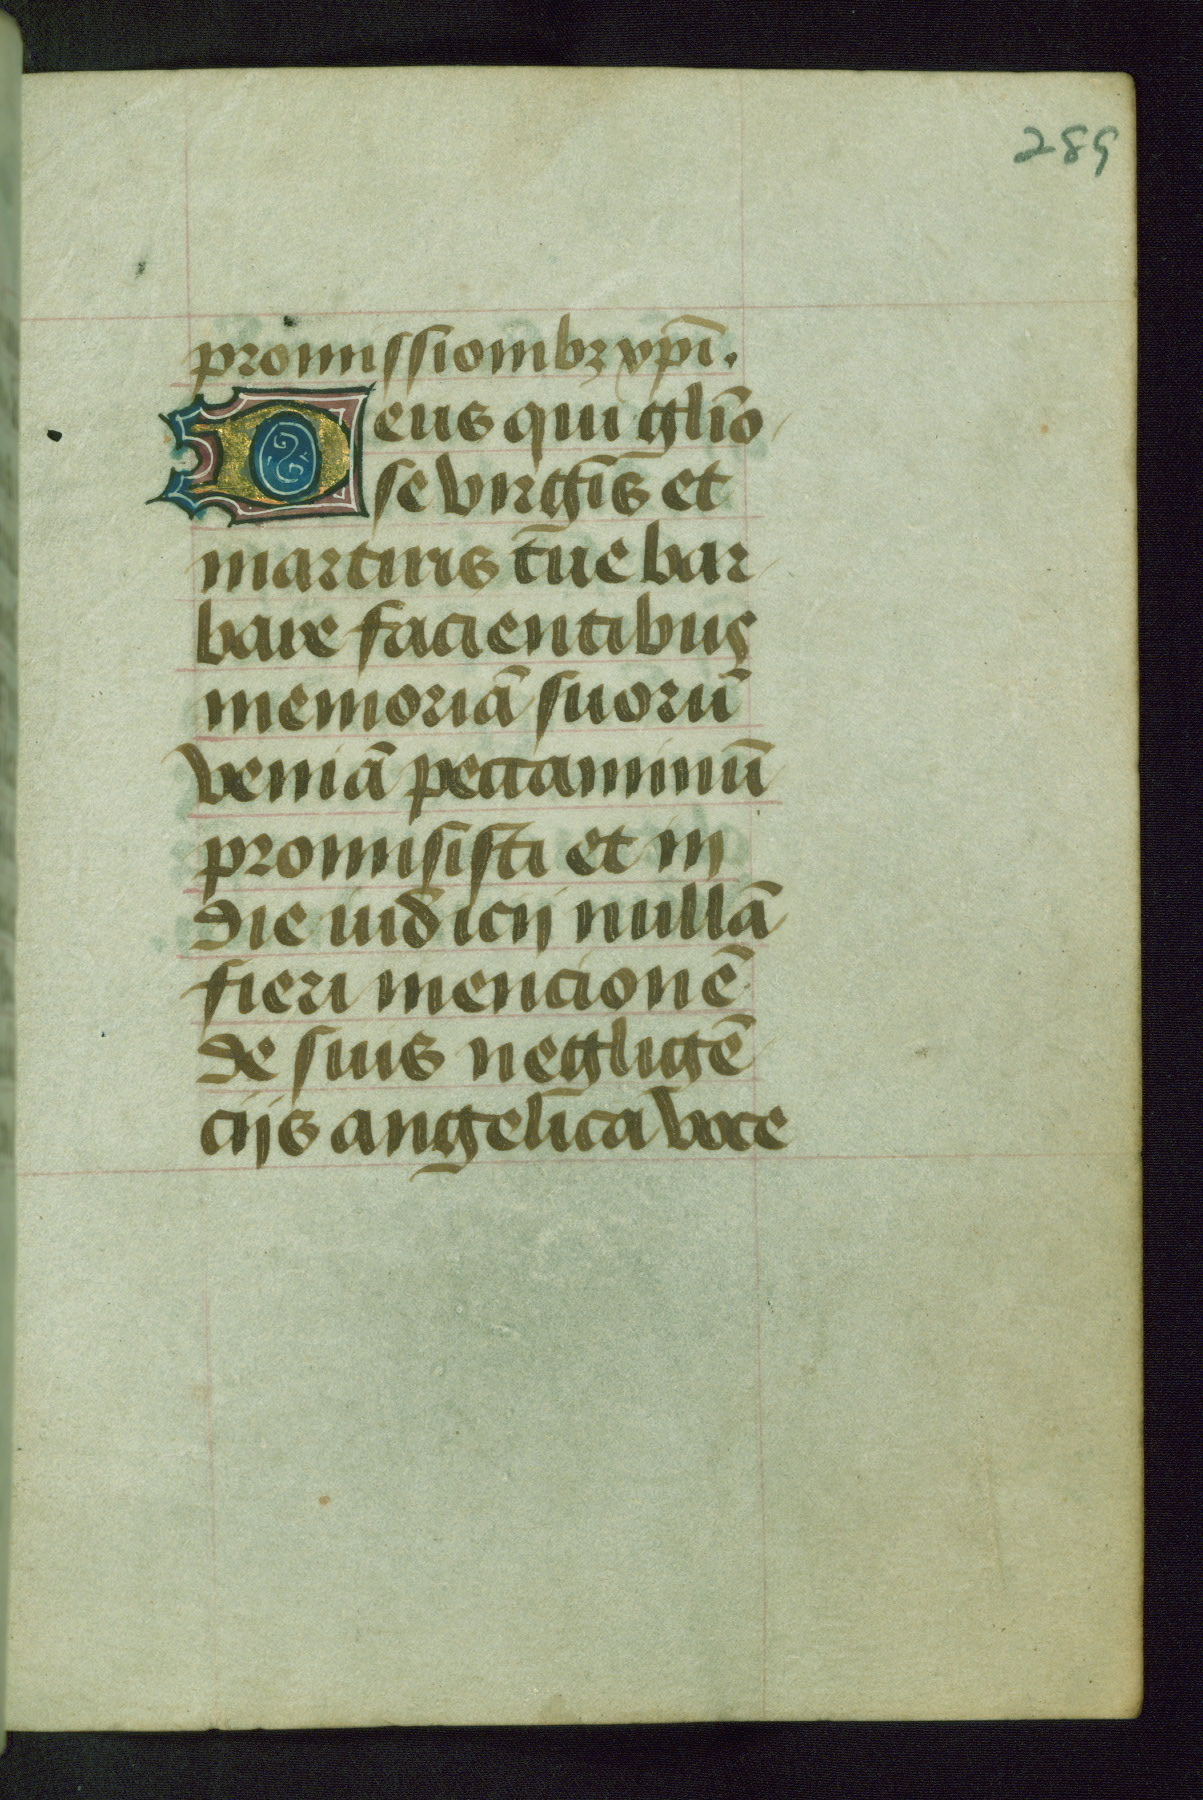 289
promissionibȝ xpi̅.
Deus qui glio̅
se virgi̅s et
martiris tu̅e bar
bare facientibus
memoria̅ suoru̅
venia̅ peccaminu̅
promisisti et in
die iudicij nulla̅
fieri mencione̅
de suis neglige̅
cijs angelica voce